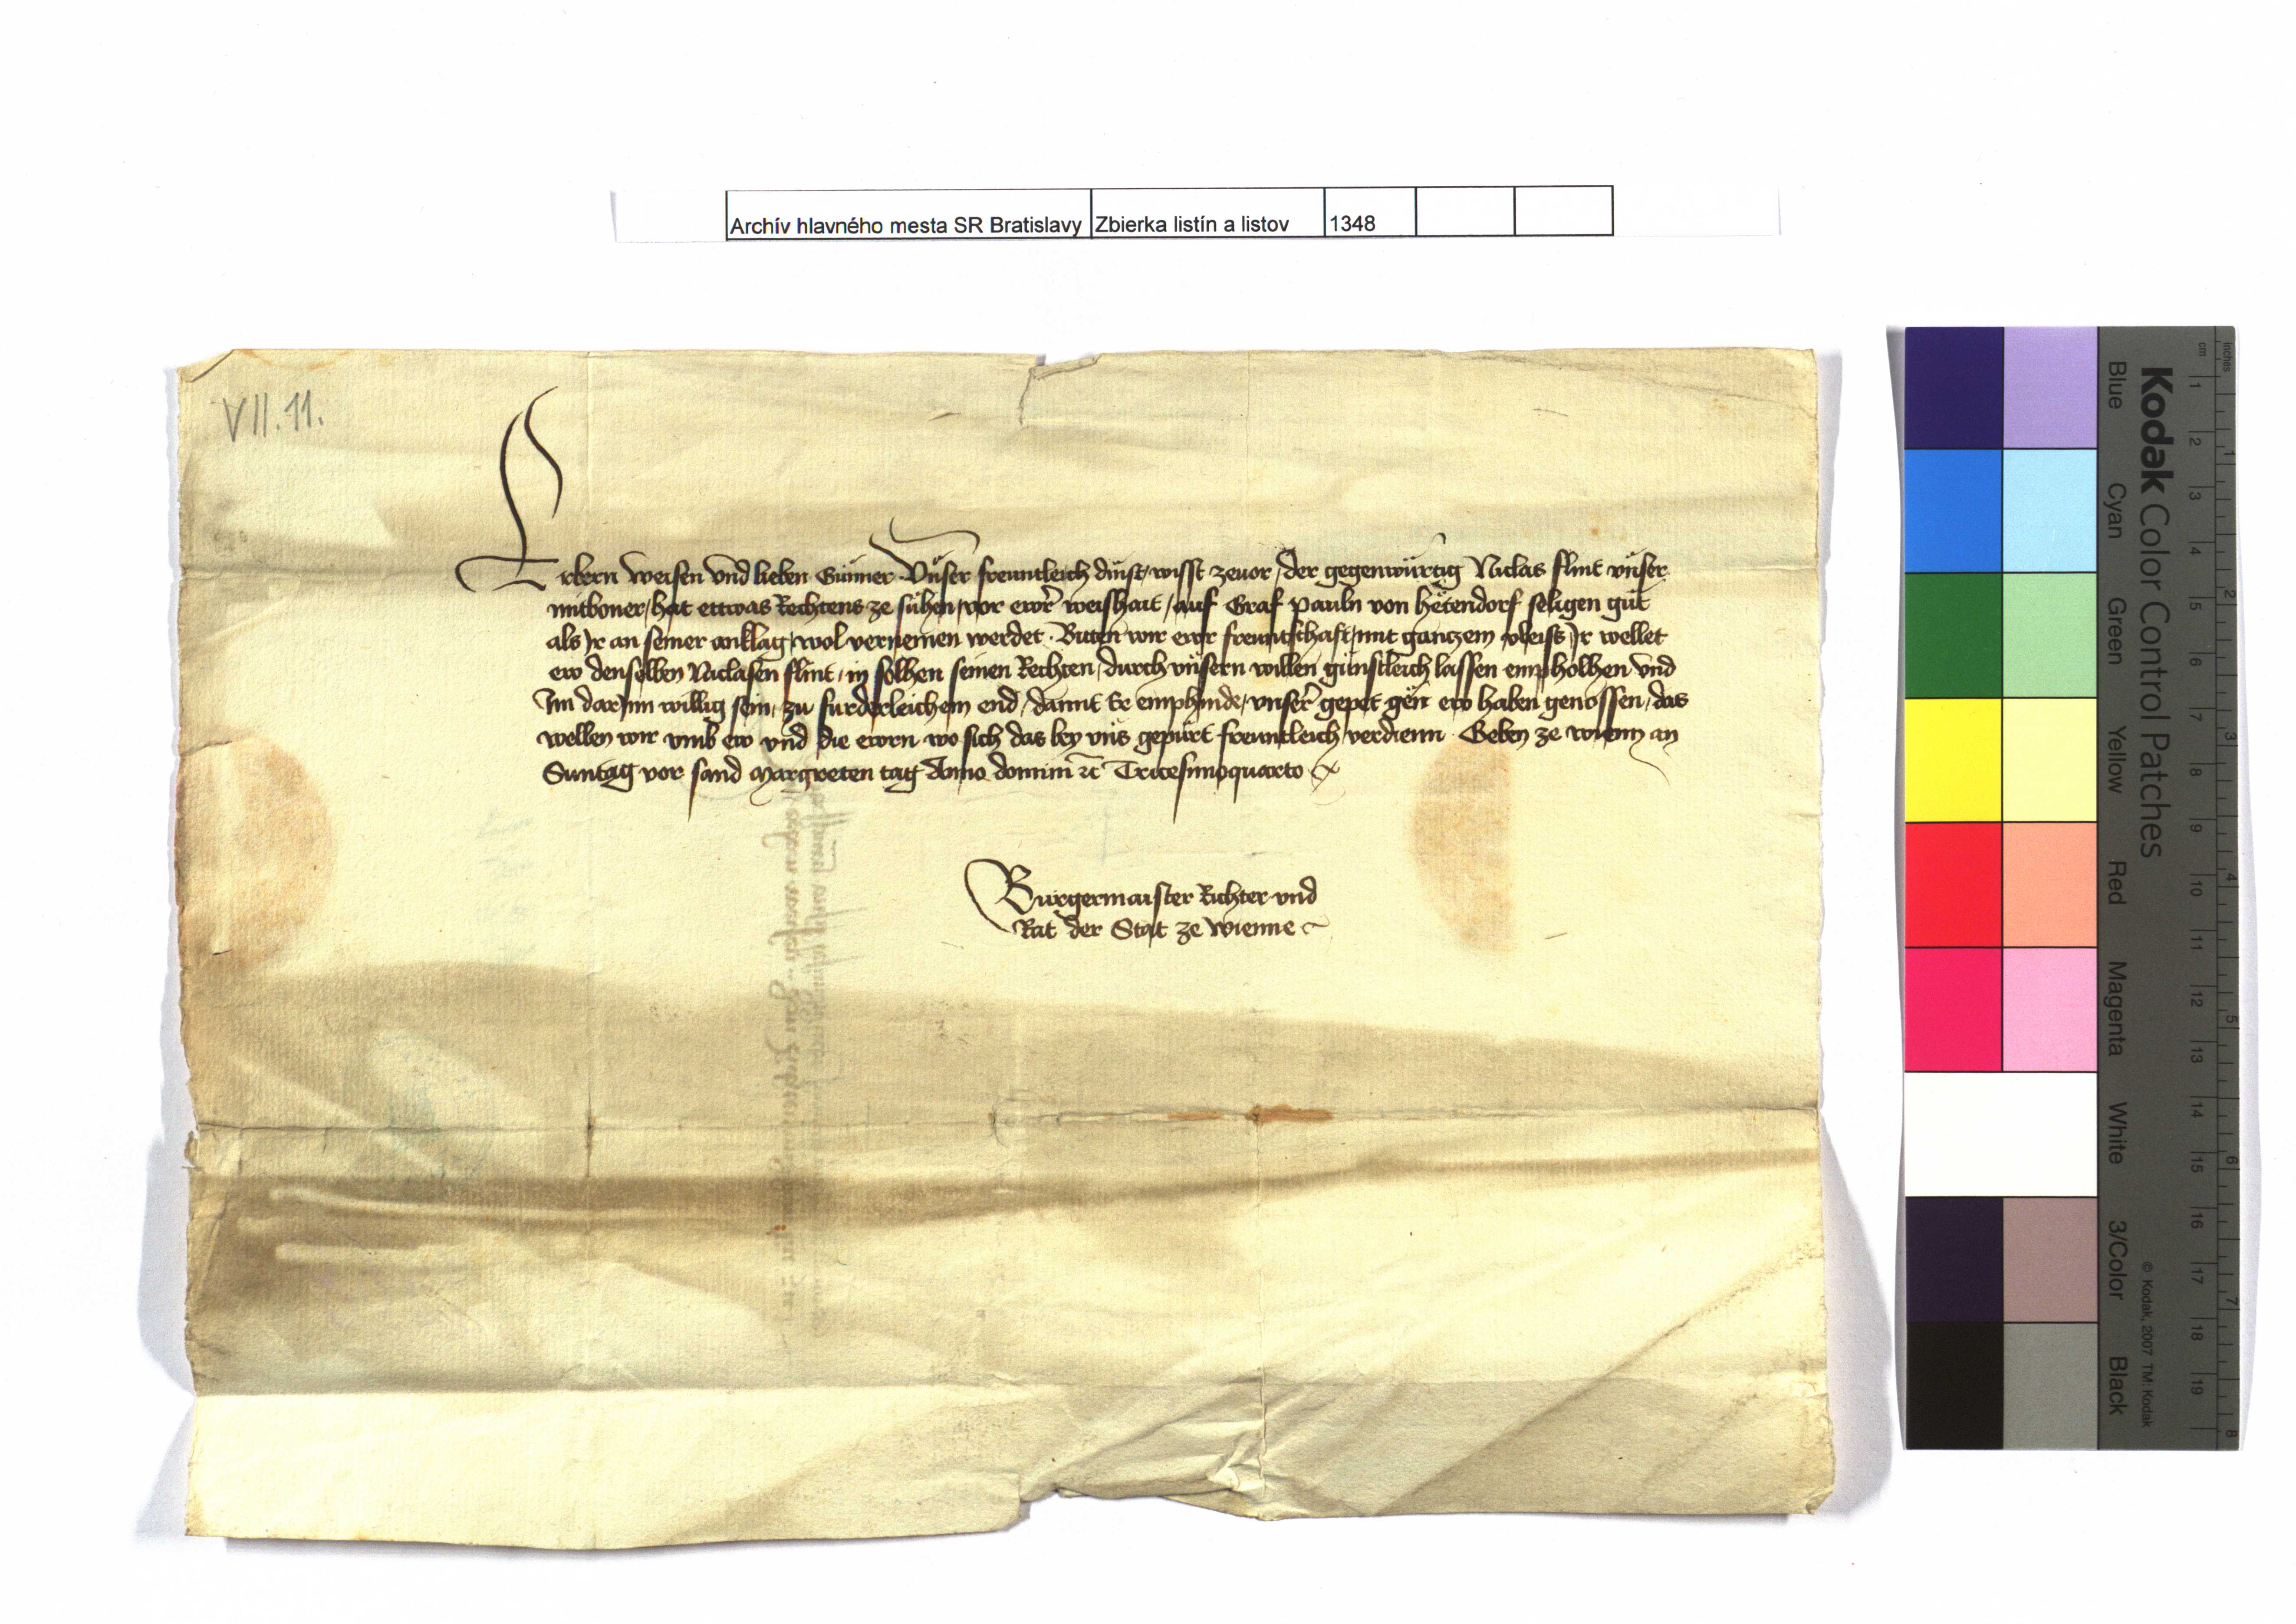 Archív hlavného mesta SR Bratislavy Zbierka listín a listov 1348
VII. 11.
Erbern weisen vnd lieben Günner Vnser freuntleich dinst wisst zeuor / der gegenwürtig Niclas flint vnser
mitboner / hat ettwas Rechtens ze sühen / vor ewr weishait / auf Graf pauln von hetendorf seligen güt
als Ir an seiner anklag / wol vernemen werdet . Bitten wir ewr freuntschaft / mit ganczem vleiss Ir wellet
ew denselben Niclasen flint / in solhen seinen Rechten / durch vnsern willen günstleich lassen empholhen vnd
Im darInn willig sein / zu furderleichem end / damit Er emphinde / vnser gepet gen ew haben genossen / das
wellen wir vmb ew vnd die ewrn wo sich das bey vns gepürt freuntleich verdienn . Geben ze wienn an
Suntag vor sand Margreten tag Anno domini etc Tricesimoquarto
Burgermaister Richter vnd
Rat der Stat ze wienne
Kodak Color Control Patches
Blue Cyan Green Yellow Red Magenta White 3/Color Black
© Kodak, 2007 TM: Kodak
inches 1 2 3 4 5 6 7 8
cm 1 2 3 4 5 6 7 8 9 10 11 12 13 14 15 16 17 18 19